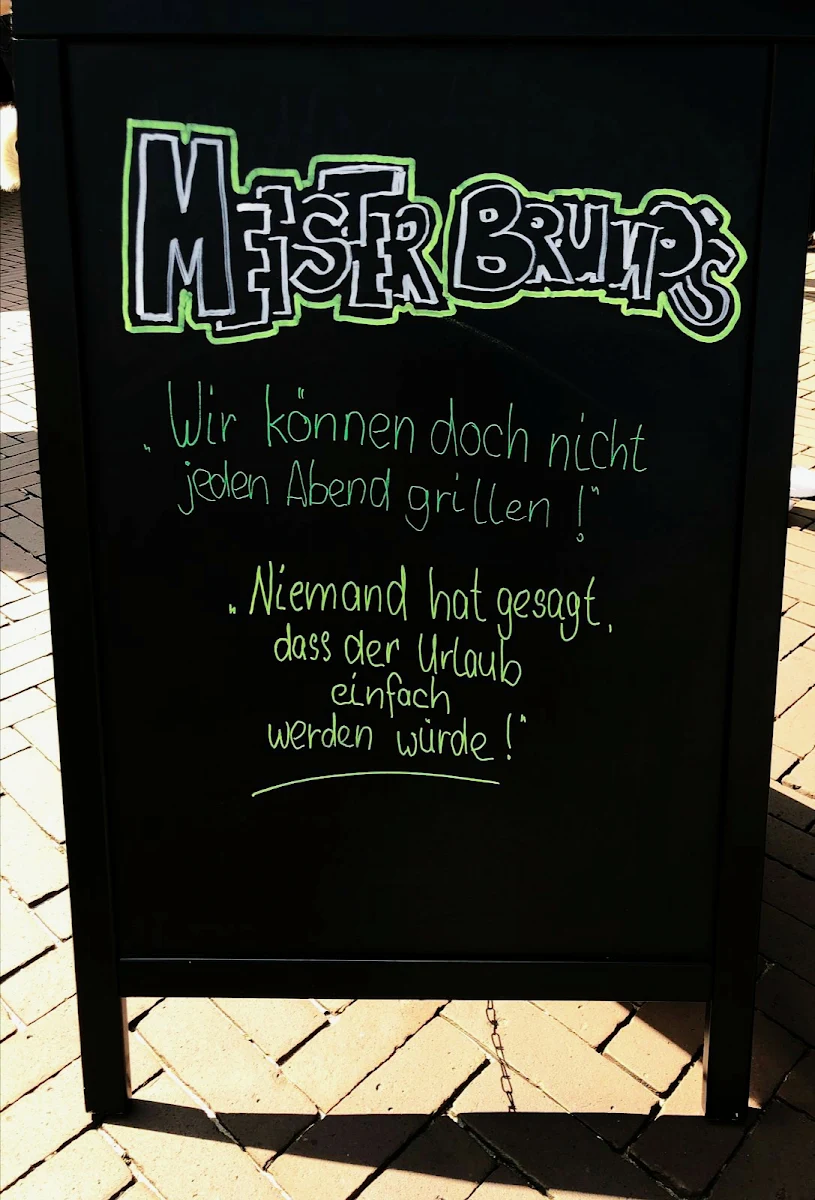 MEISTER BRUMM'S
„Wir können doch nicht
jeden Abend grillen!"
„Niemand hat gesagt,
dass der Urlaub
einfach
werden würde!"